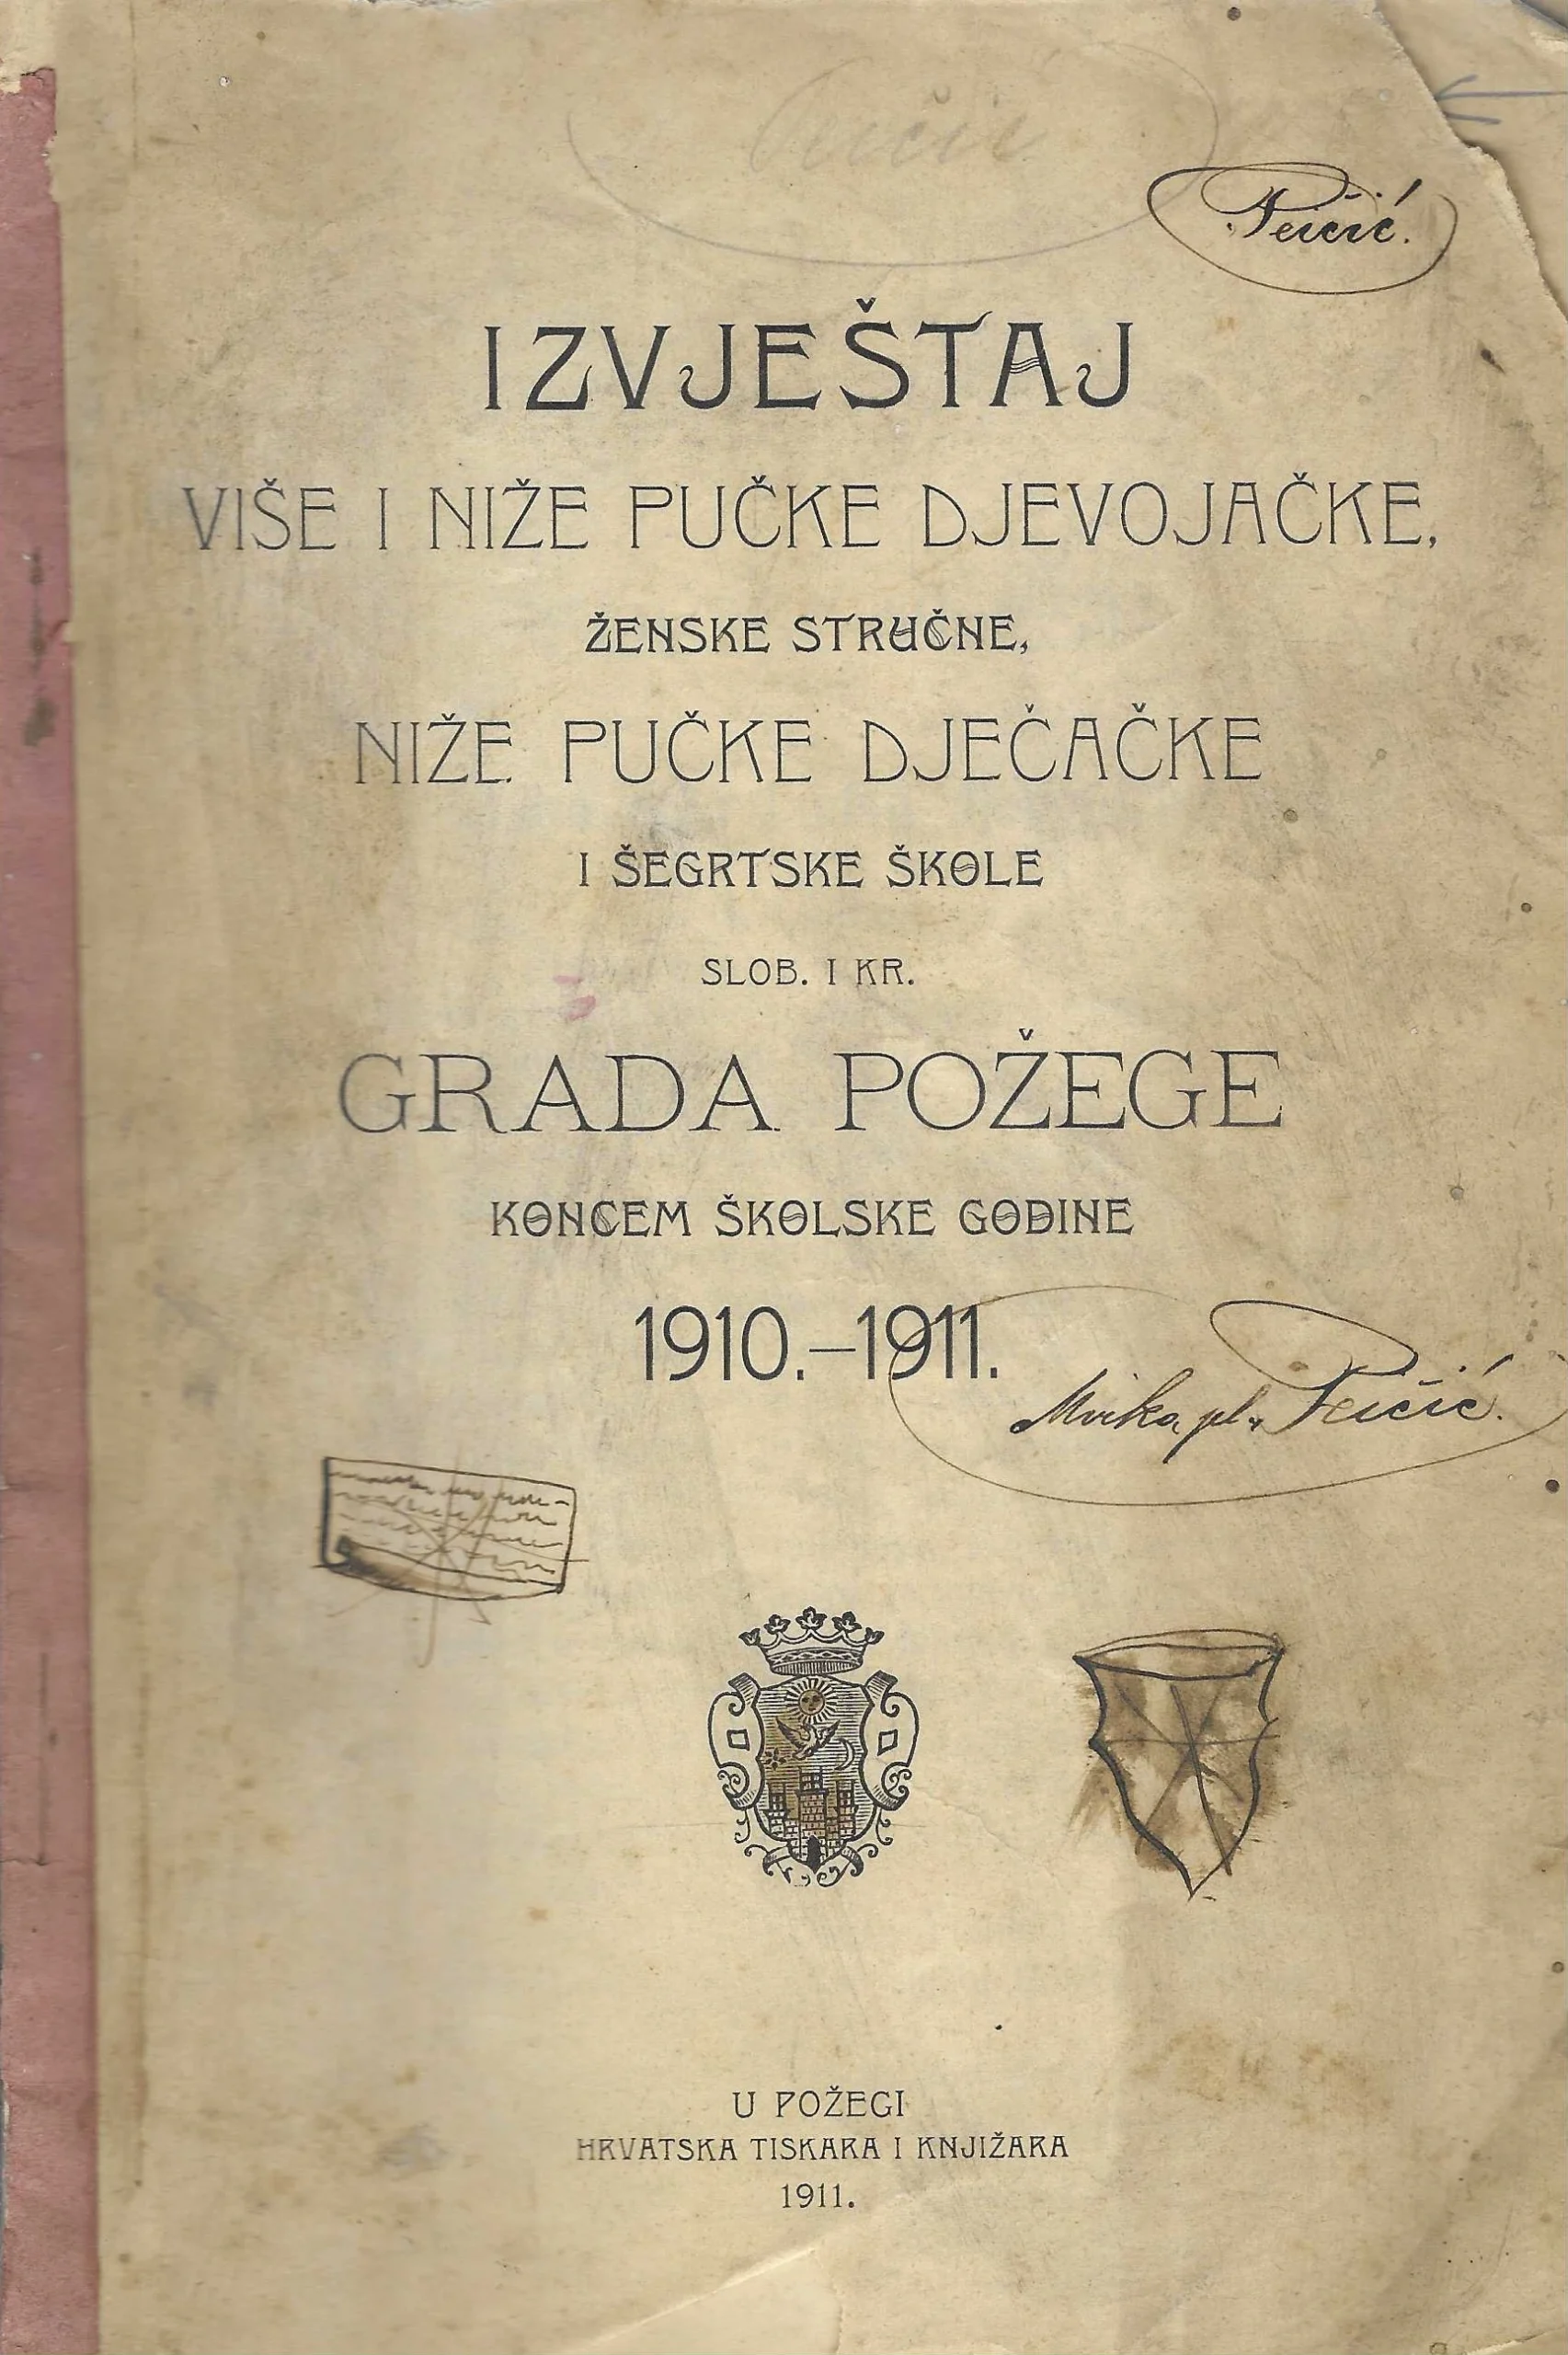 Peičić.
IZVJEŠTAJ
VIŠE I NIŽE PUČKE DJEVOJAČKE,
ŽENSKE STRUČNE,
NIŽE PUČKE DJEČAČKE
I ŠEGRTSKE ŠKOLE
SLOB. I KR.
GRADA POŽEGE
KONCEM ŠKOLSKE GODINE
1910.—1911.
pl. Peičić.
U POŽEGI
HRVATSKA TISKARA I KNJIŽARA
1911.